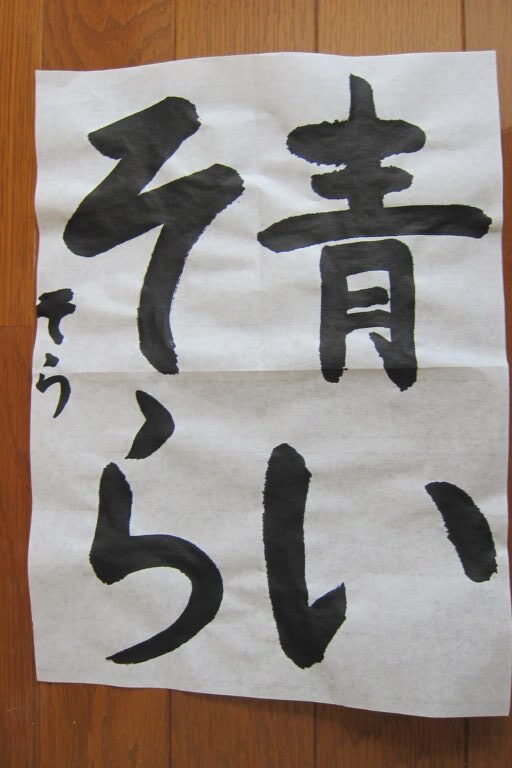 青い
そら
そら